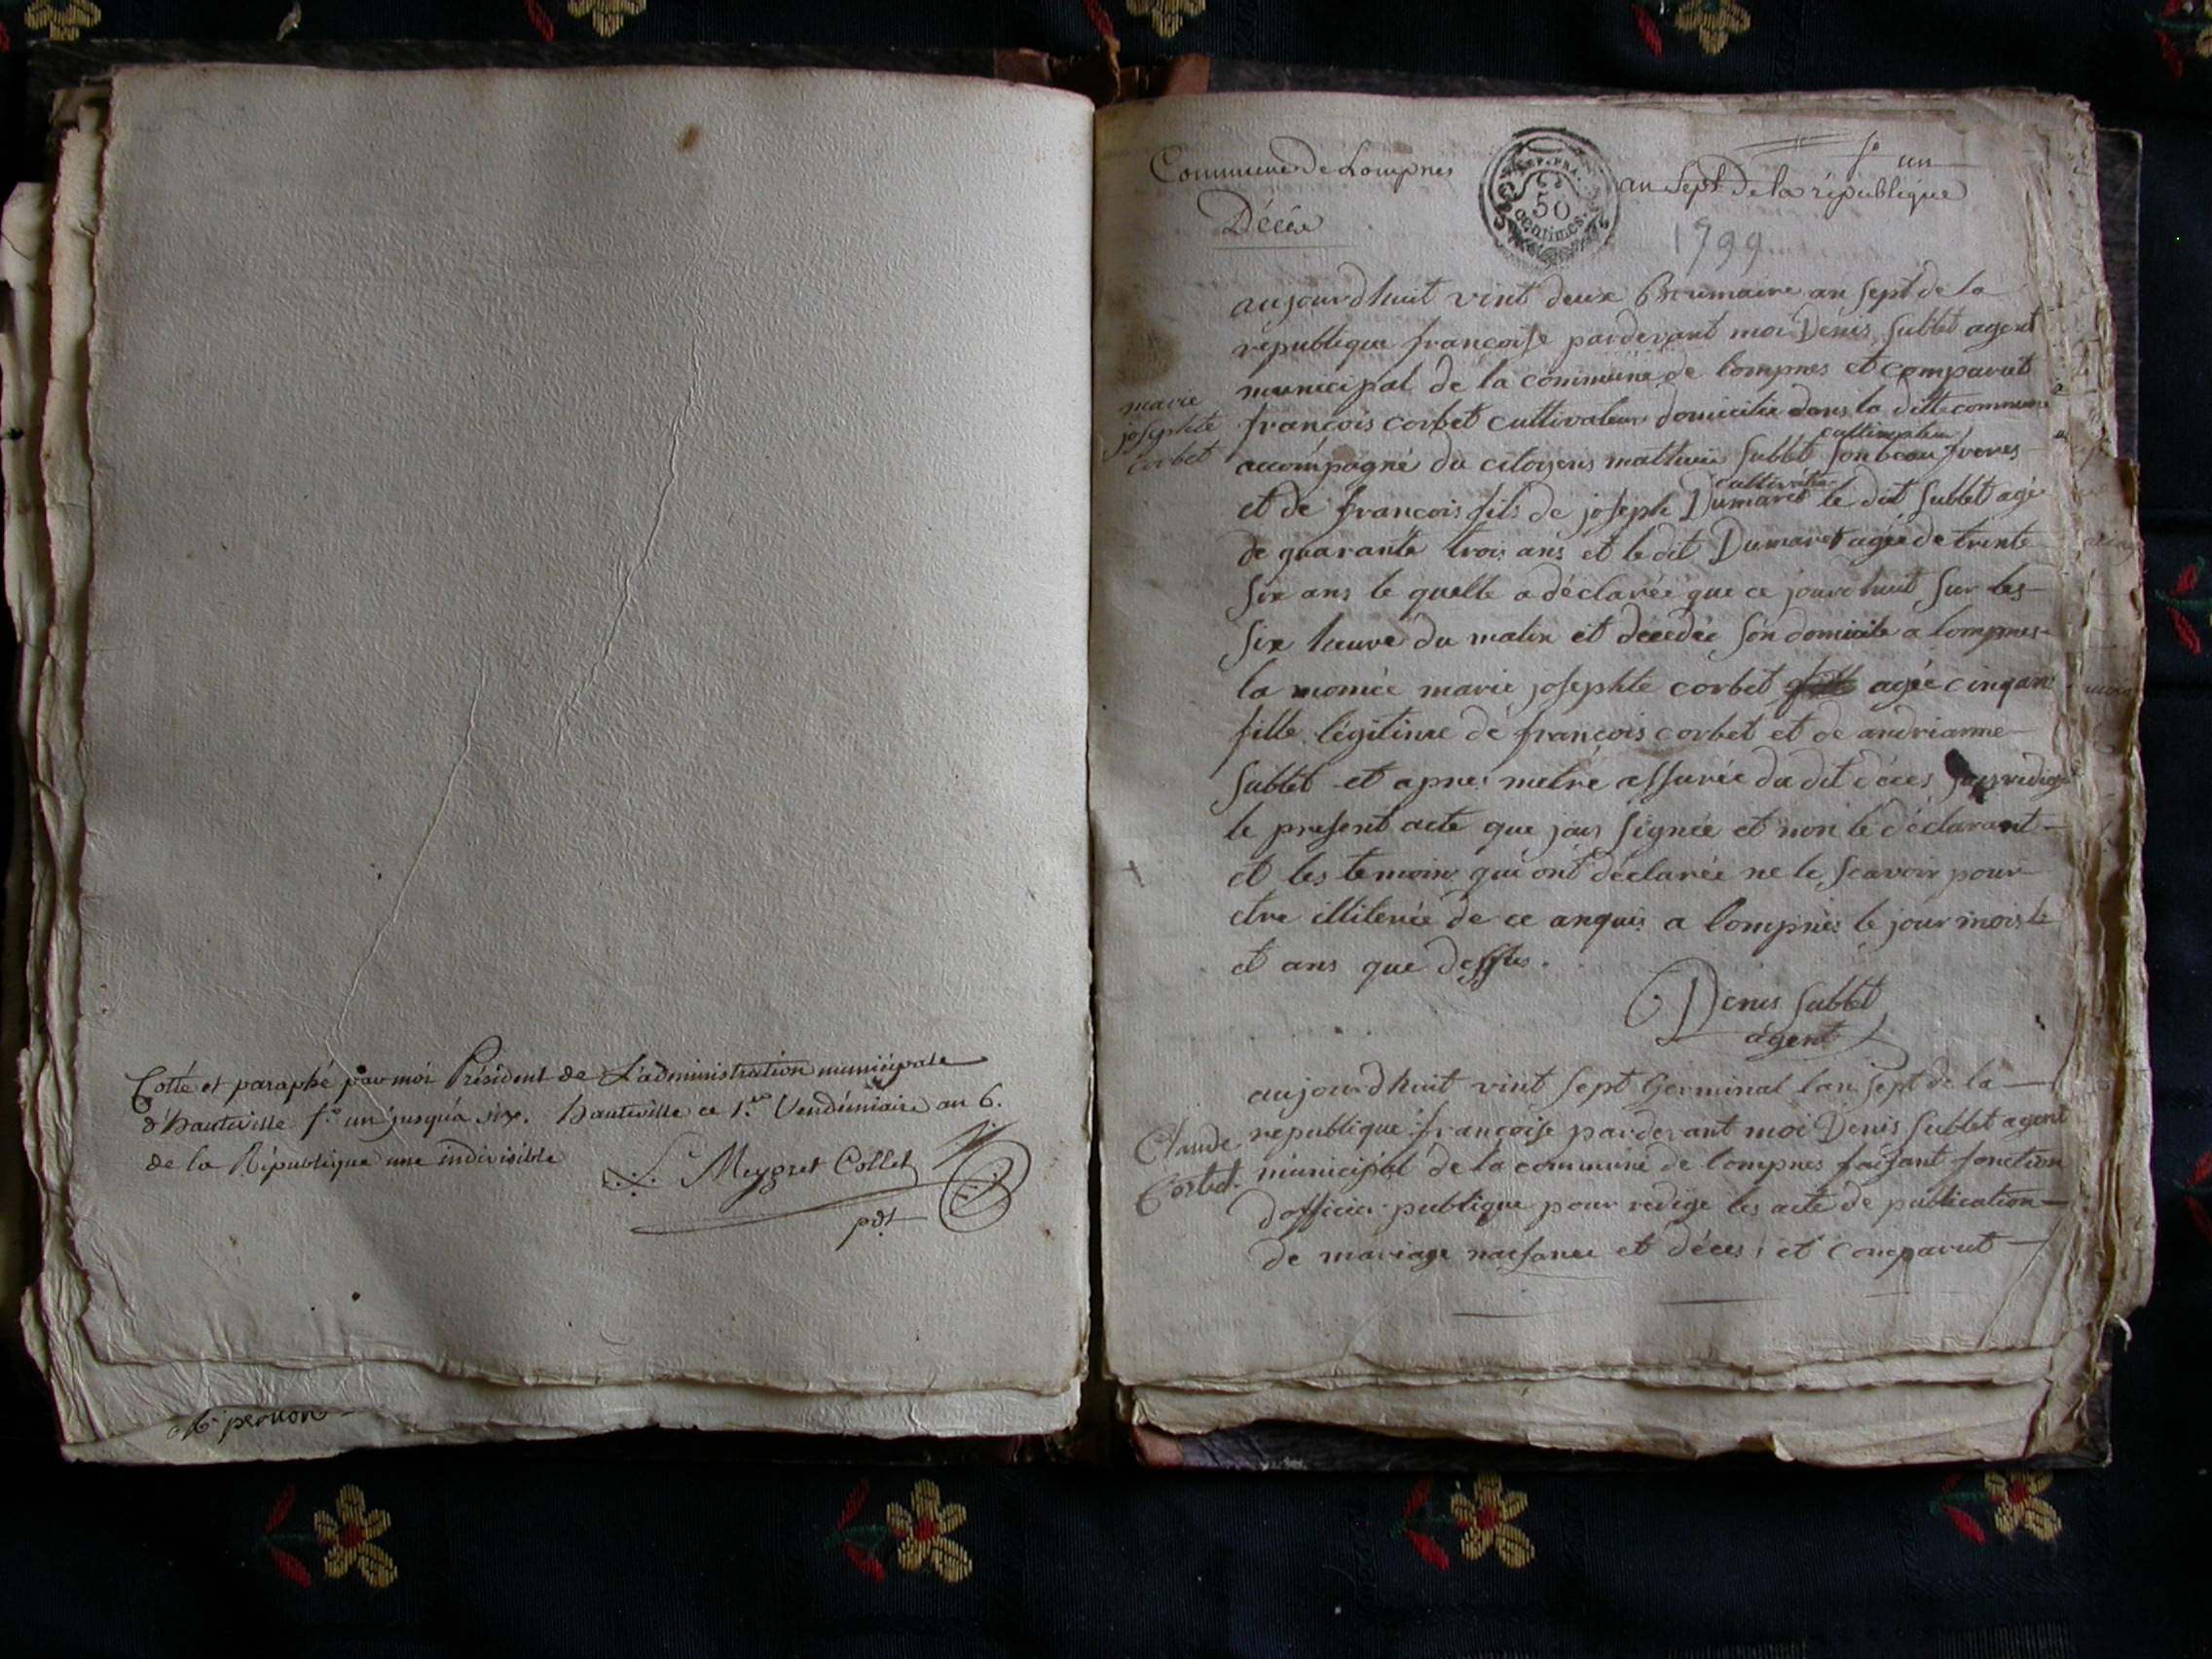 Cotté et paraphé par moi Président de L'administration municipale
d'hauteville f.o un jusqu'a six. hauteville ce 1.er Vendémiaire an 6.
de la République une indivisible
Meygret Collet
pdt
perron
f.o un
Commune de Lompnes
an Sept de la république
REP. FRA.
50
centimes.
Décée
1799
aujourdhuit vint deux Brumaire an sept de la
république francoise pardevant moi Denis Sublet agent
municipal de la commune de lompnes et comparut
marie
josephte
corbet
françois corbet cultivateur domicilie dans la ditte commune
accompagné du citoyens mathieu Sublet cultivateur son beau freres
et de francois fils de joseph Dumaret cultivateur le dit Sublet agé
de quarante trois ans et le dit Dumaret agée de trinte
six ans le quelle a déclarée que ce jourdhuit sur les
six heure du matin et décedée son domicile a lompnes
la nomée marie josephte corbet agée cinq an
fille légitime de françois corbet et de andrianne
Sublet et apres metre assurée du dit déces redigé
le present acte que jais signée et non le déclarant
et les temoins qui ont déclarée ne le scavoir pour
etre illiterée de ce anquis a lompnes le jour mois
et ans que dessus.
Denis Sublet
agent
aujourdhuit vint sept Germinal lan sept de la
Claude
Corbet.
republique françoise pardevant moi Denis Sublet agent
municipal de la commune de lompnes faisant fonction
dofficier publique pour redige les acte de publication
de mariage naisance et déces, et comparut